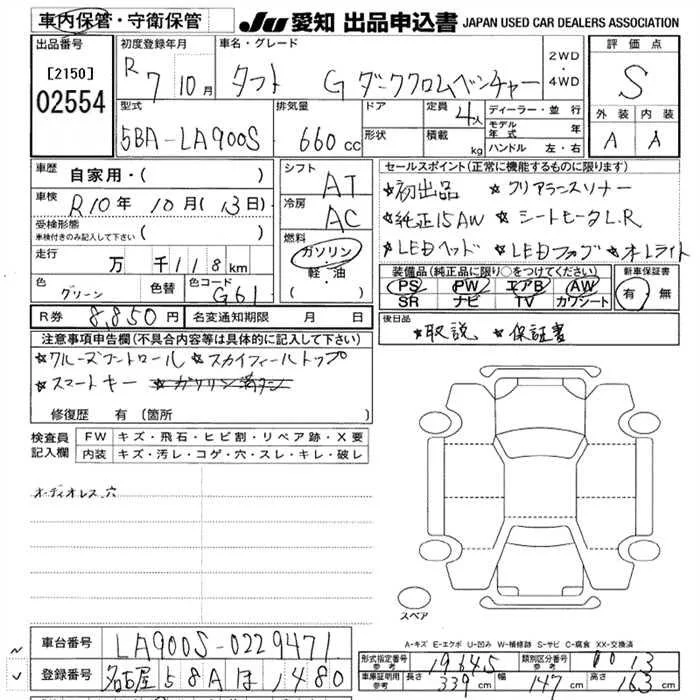 車内保管・守衛保管 JU 愛知 出品申込書 JAPAN USED CAR DEALERS ASSOCIATION
出品番号 [2150] 02554
初度登録年月 R 7年 10月
車名・グレード タフト G ダーククロムベンチャー 2WD・4WD
評価点 S
外装 A 内装 A
型式 5BA-LA900S
排気量 660 cc
ドア 形状
定員 4人 積載 kg
ディーラー・並行
モデル年式 年
ハンドル 左・右
車歴 自家用・( )
車検 R10年 10月(13日)
受検形態 車検付きのみ記入して下さい ( )
走行 万 千118km
色 グリーン 色替 色コード G61
シフト AT
冷房 AC
燃料 ガソリン・軽・油
セールスポイント(正常に機能するものに限ります)
☆初出品 ☆クリアランスソナー
☆純正15AW ☆シートヒータL.R
☆LEDヘッド ☆LEDフォグ ☆オートライト
装備品(純正品に限り○をつけてください)
PS PW エアB AW
SR ナビ TV カワシート
新車保証書 有・無
R券 8,850円 名変通知期限 月 日
後日品 ☆取説 ☆保証書
注意事項申告欄(不具合内容等は具体的に記入して下さい)
☆クルーズコントロール ☆スカイフィールトップ
☆スマートキー
修復歴 有(箇所 )
検査員記入欄
FW キズ・飛石・ヒビ割・リペア跡・X要
内装 キズ・汚レ・コゲ・穴・スレ・キレ・破レ
オーディオレス 穴
スペア
A-キズ E-エクボ U-凹み W-補修跡 S-サビ C-腐食 XX-交換済
車台番号 LA900S-0229471
登録番号 名古屋 58A ほ 1480
形式指定番号 参考 19645 類別区分番号 参考 0013
車庫証明用 参考 長さ 339cm 幅 147cm 高さ 163cm